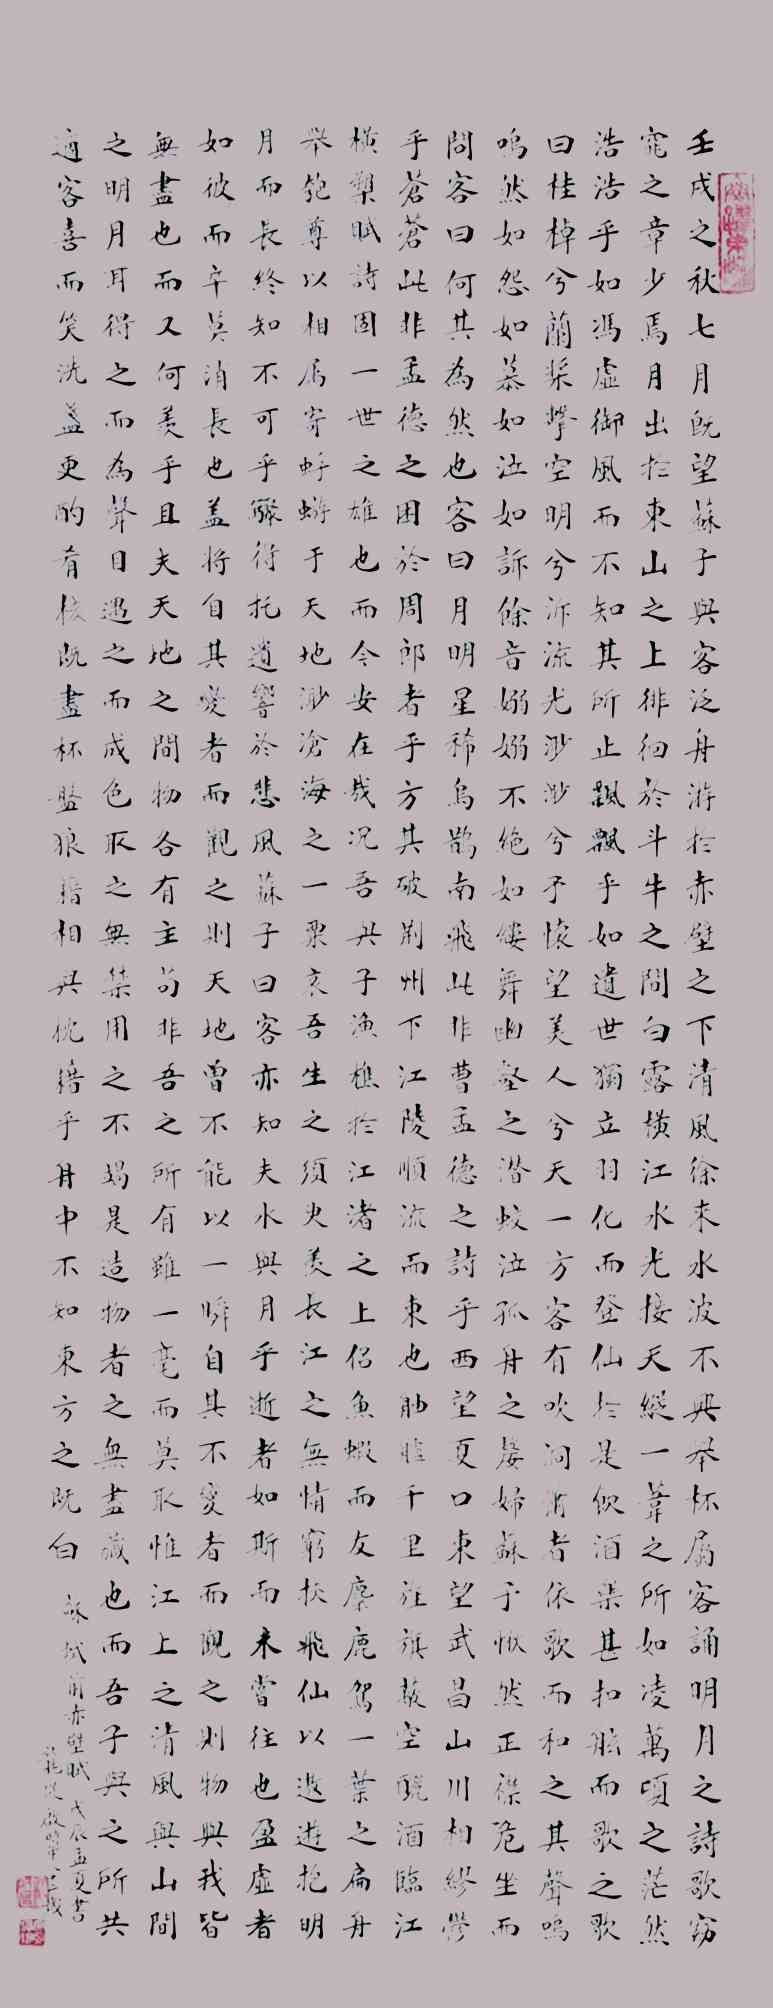 壬戌之秋七月既望蘇子與客泛舟游於赤壁之下清風徐来水波不興举杯屬客誦明月之詩歌窈
窕之章少焉月出於東山之上徘徊於斗牛之間白露横江水光接天縱一葦之所如凌萬頃之茫然
浩浩乎如馮虚御風而不知其所止飄飄乎如遺世獨立羽化而登仙於是飲酒樂甚扣舷而歌之歌
曰桂棹兮蘭槳擊空明兮泝流光渺渺兮予懷望美人兮天一方客有吹洞簫者依歌而和之其聲嗚
嗚然如怨如慕如泣如訴餘音嫋嫋不絶如縷舞幽壑之潜蛟泣孤舟之嫠婦蘇子愀然正襟危坐而
問客曰何其為然也客曰月明星稀烏鵲南飛此非曹孟德之詩乎西望夏口東望武昌山川相繆鬱
乎蒼蒼此非孟德之困於周郎者乎方其破荆州下江陵順流而東也舳艫千里旌旗蔽空釃酒臨江
横槊賦詩固一世之雄也而今安在哉况吾與子漁樵於江渚之上侣魚蝦而友麋鹿駕一葉之扁舟
举匏尊以相屬寄蜉蝣于天地渺滄海之一粟哀吾生之須臾羡長江之無情窮挾飛仙以遨遊抱明
月而長終知不可乎驟得托遺響於悲風蘇子曰客亦知夫水與月乎逝者如斯而未嘗往也盈虚者
如彼而卒莫消長也盖将自其變者而觀之則天地曾不能以一瞬自其不變者而觀之則物與我皆
無盡也而又何羡乎且夫天地之間物各有主苟非吾之所有雖一毫而莫取惟江上之清風與山間
之明月耳得之而為聲目遇之而成色取之無禁用之不竭是造物者之無盡藏也而吾子與之所共
適客喜而笑洗盞更酌肴核既盡杯盤狼藉相與枕藉乎舟中不知東方之既白
蘇軾前赤壁賦戊辰孟夏書